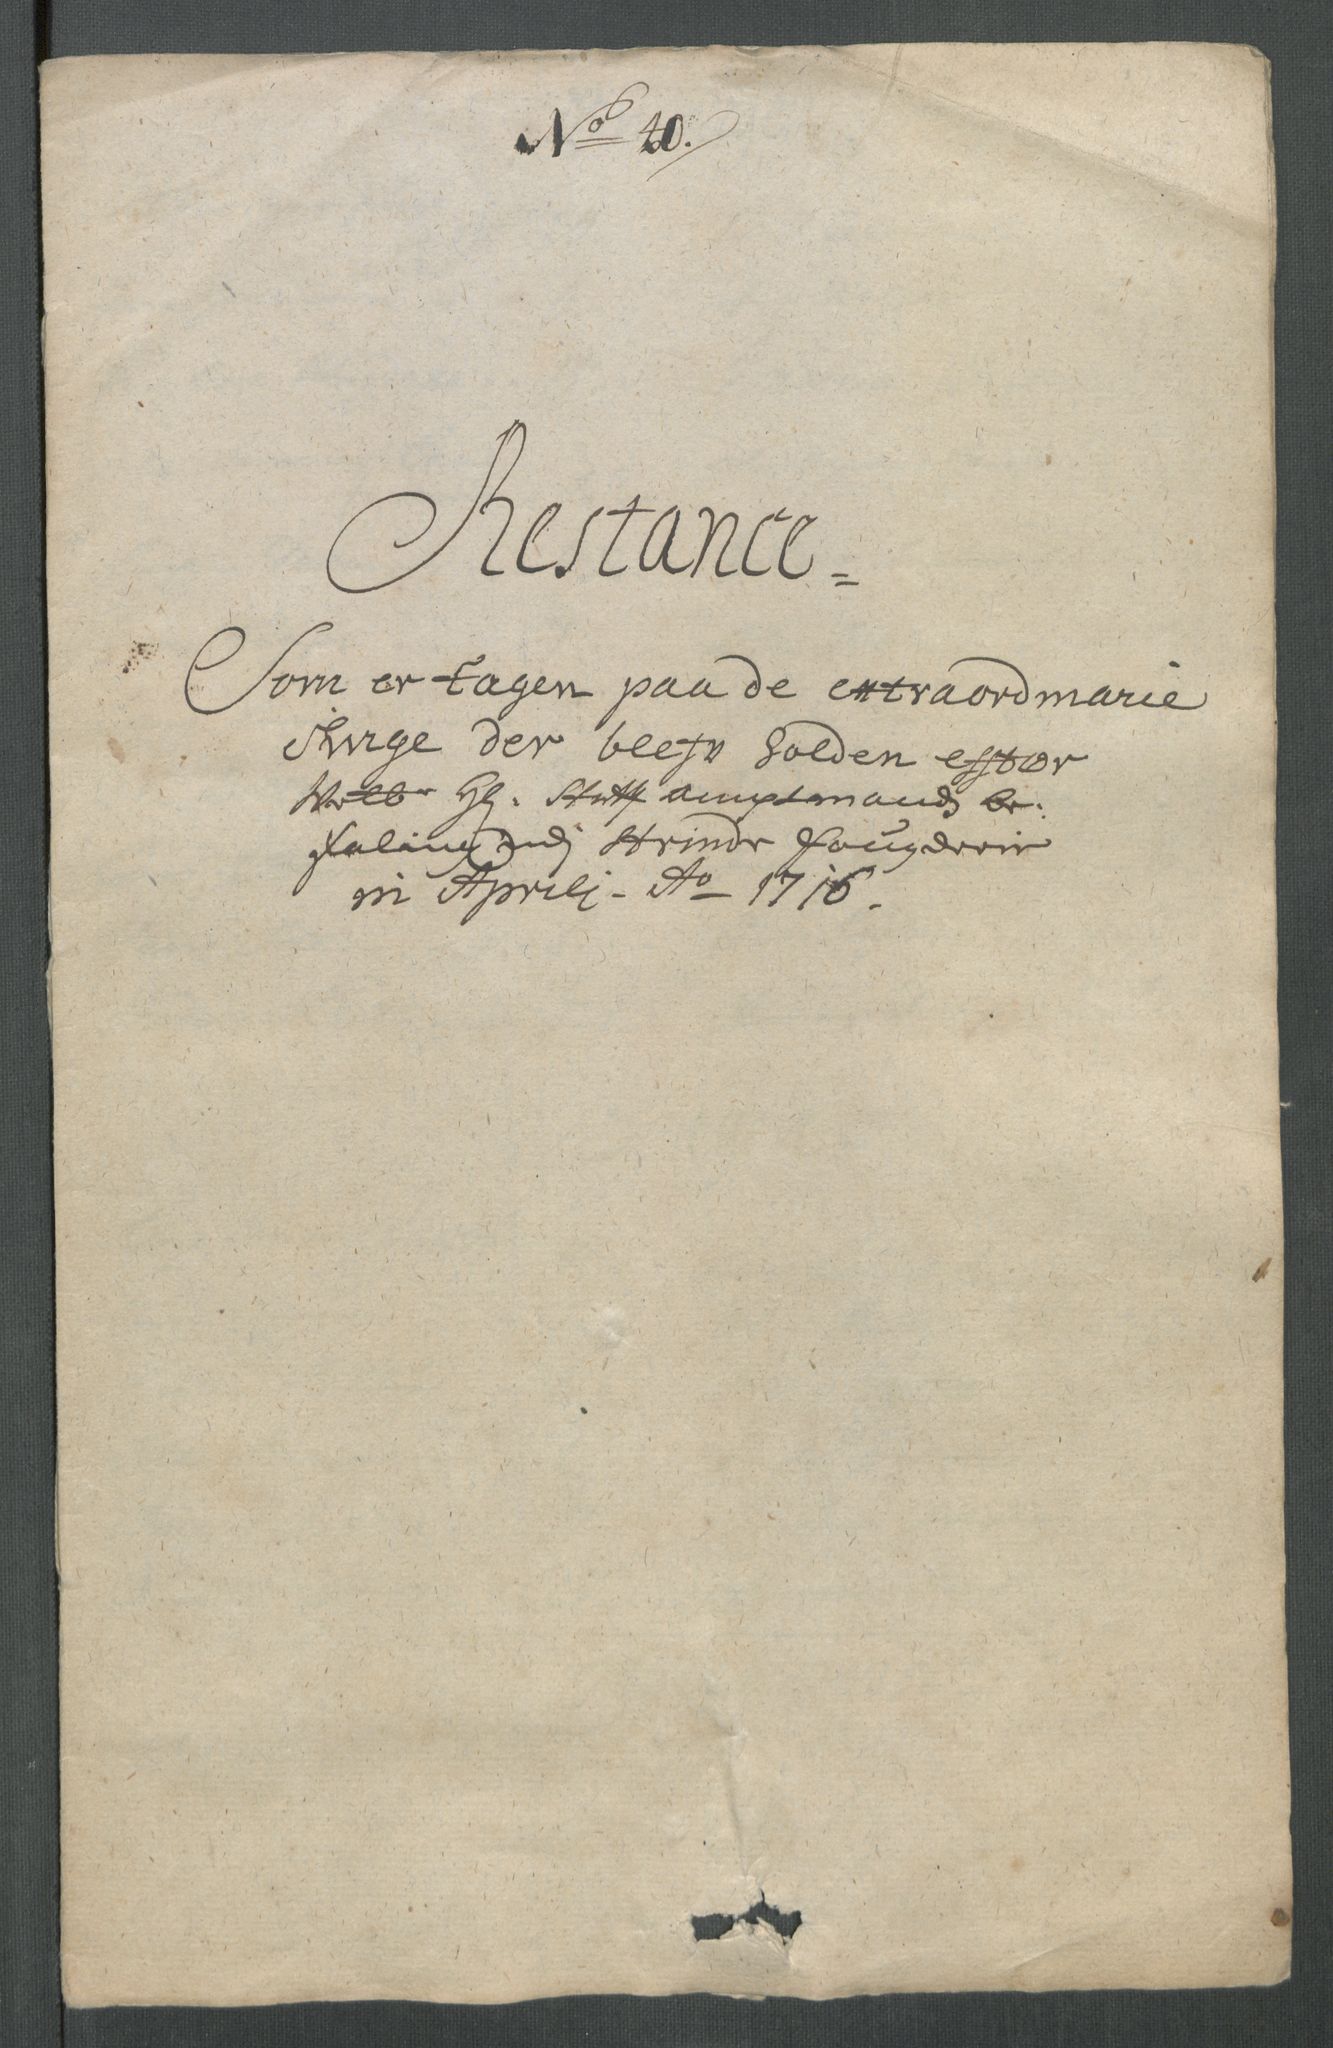 No 40.
Restance =
Som er tagen paa de extraordinarie
tinge der blefv holden efter
Welb: Hr. Stift amptmands be:
faling udj Strinde fougderie
in Aprili - Ao 1716.